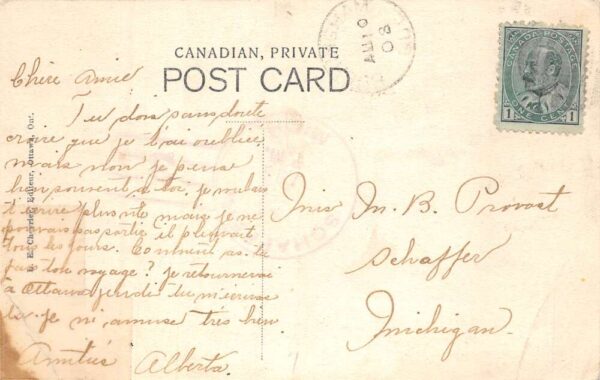 CANADIAN, PRIVATE
POST CARD
CANADA POSTAGE
1 ONE CENT 1
AU 10
08
Chère Amie
Tu dois sans doute
croire que je t'ai oubliée
mais non je pense
bien souvent à toi. je voulais
t'écrire plus vite mais je ne
pouvais pas sortir il pleuvait
tous les jours. Comment as-tu
fait ton voyage? je retournerai
à Ottawa jeudi tu m'écriras
là. je m'amuse très bien
Amitiés Alberta.
Miss M. B. Provost
Schaffer
Michigan.
Editeur, Ottawa, Ont.
SCHAFFER